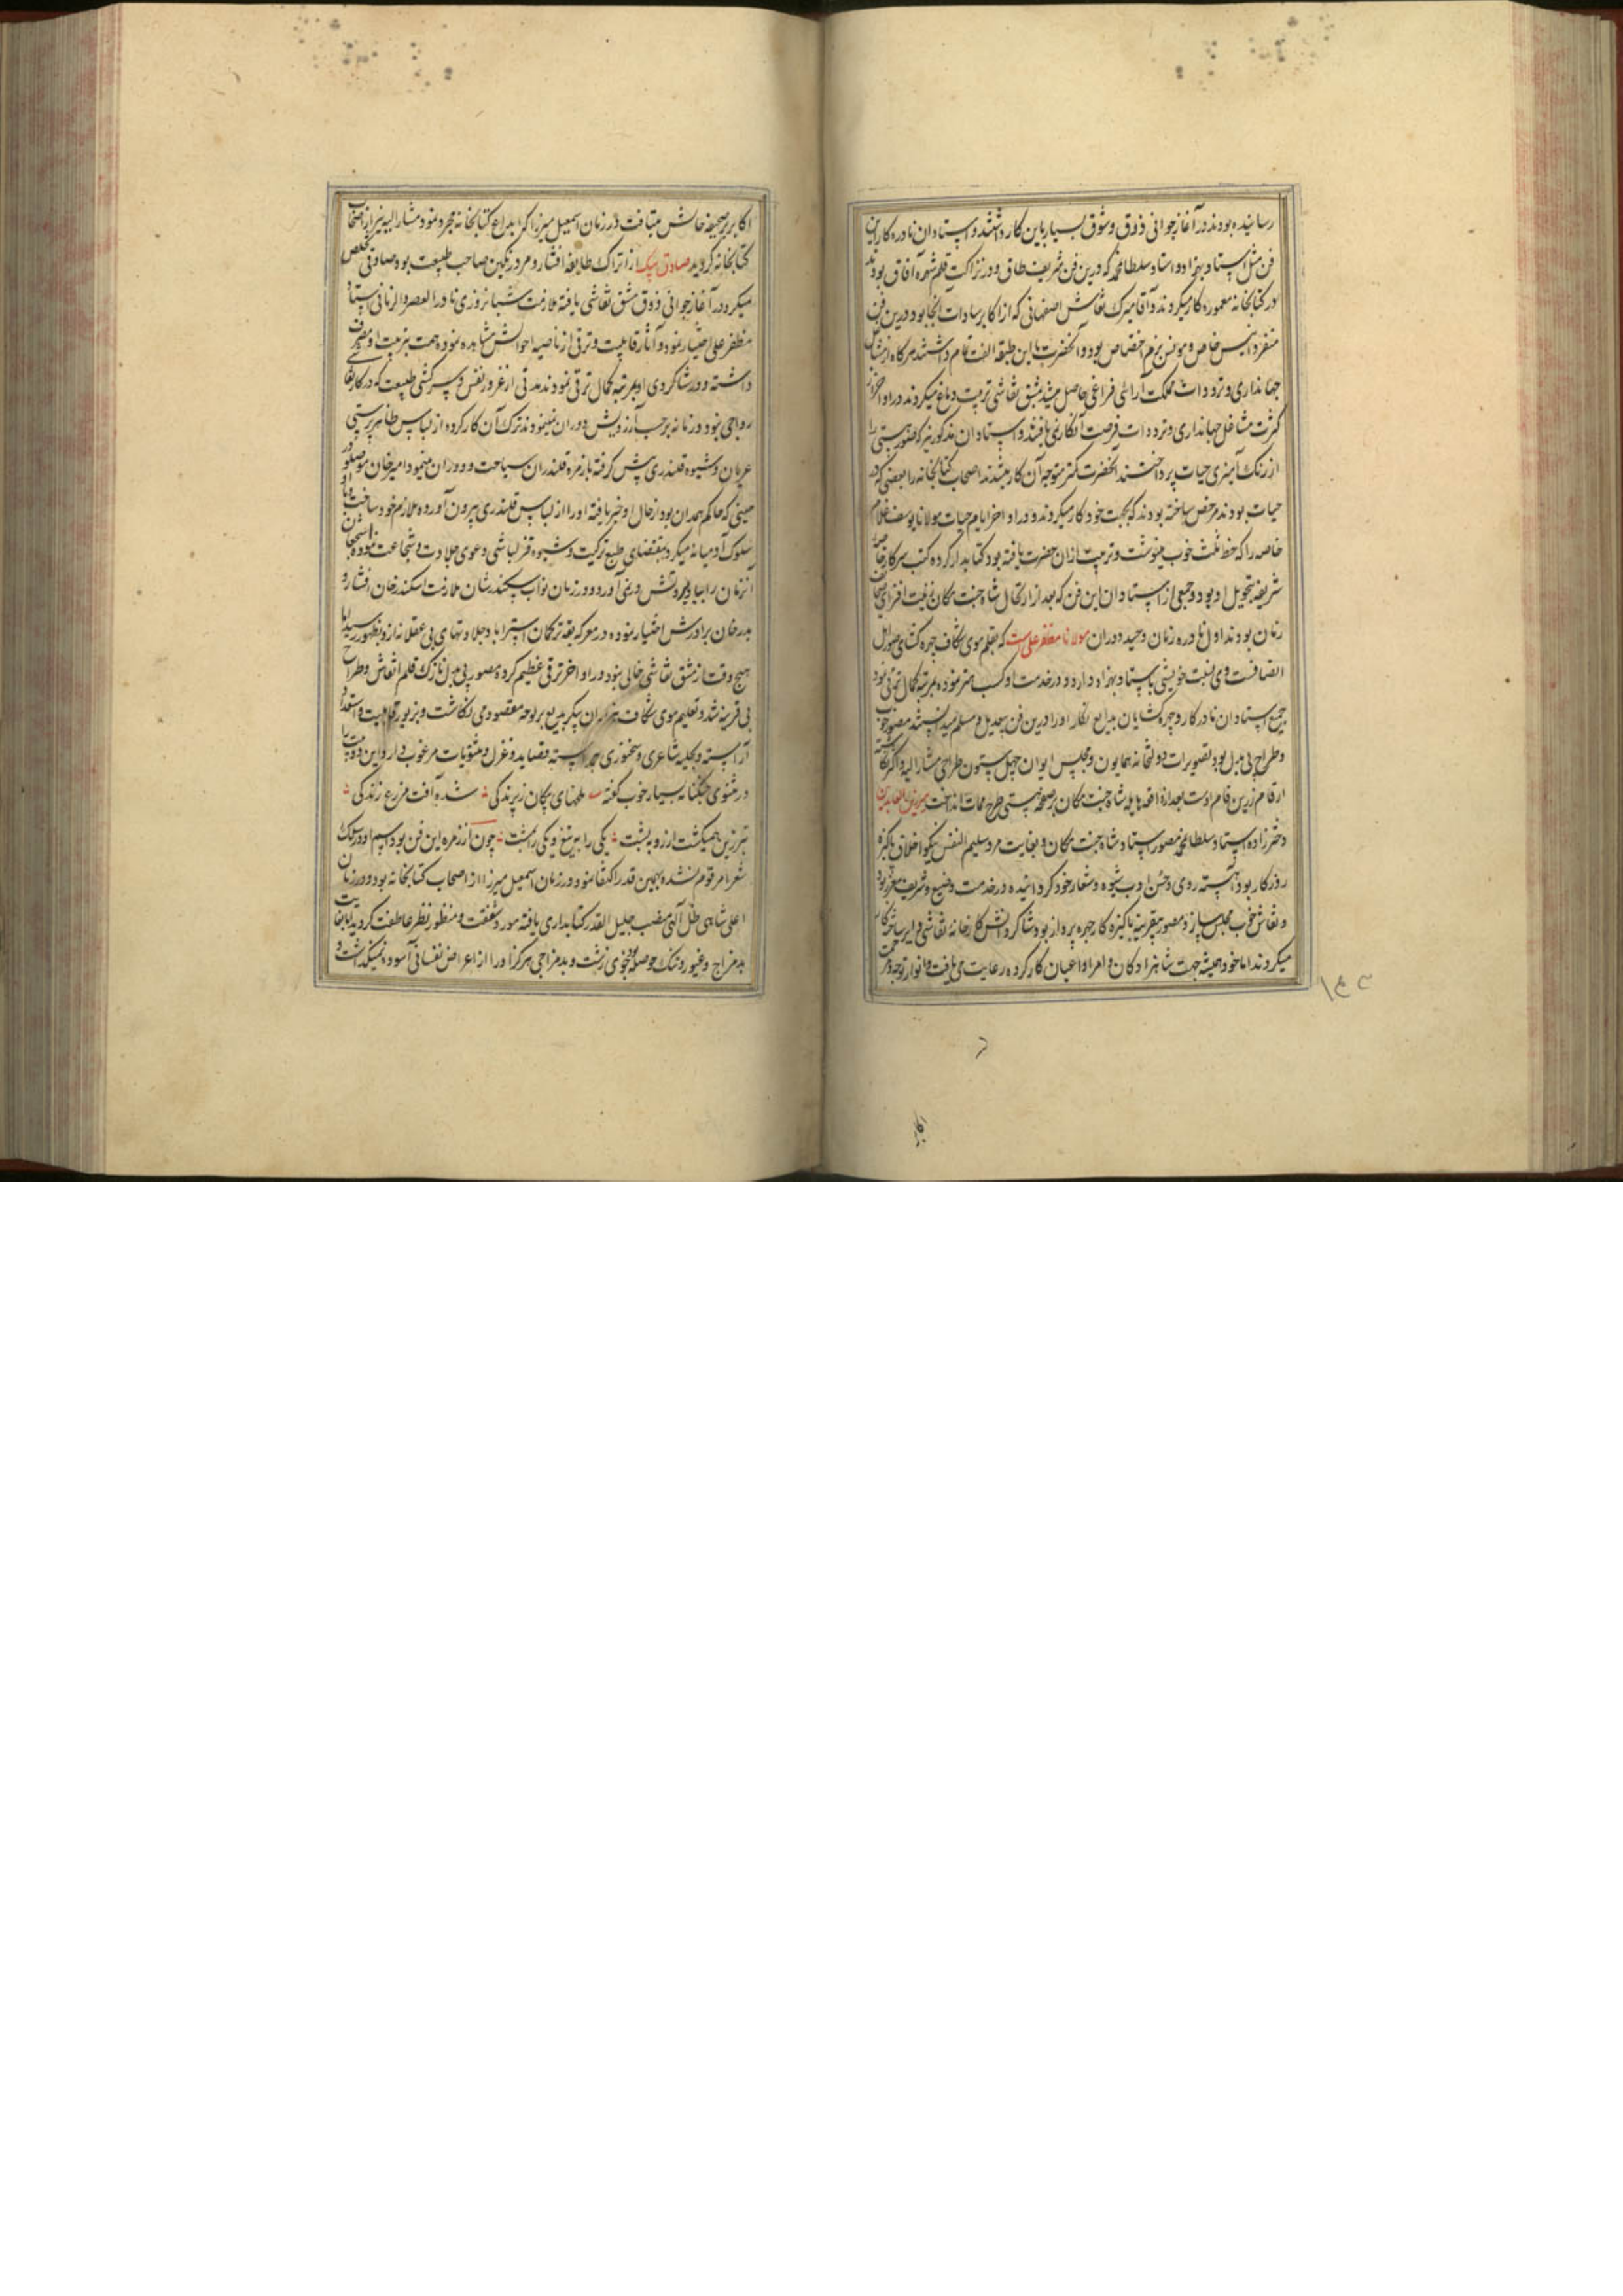 رسانیده بودند در آغاز جوانی ذوق و شوق بسیار باین کار داشتند و استادان نادره کار این
فن مثل استاد بهزاد و استاد سلطان محمد که درین فن شریف طاق و در نزاکت قلم شهره آفاق بودند
در کتابخانه معموره کار میکردند و آقا میرک نقاش اصفهانی که از اکابر سادات آنجا بود و درین فن
منفرد انیس خاص و مونس بزم اختصاص بود و آنحضرت با این طبقه الفت تمام داشتند هرگاه از مشاغل
جهانداری و ترددات مملکت آرائی فراغی حاصل میشد بمشق نقاشی تربیت دماغ میکردند در اواخر از
کثرت مشاغل جهانداری و ترددات فرصت آن کار نمی یافتند و استادان مذکور نیز که صور هستی را
از رنک آمیزی حیات پرداختند آنحضرت کمتر متوجه آن کار میشدند اصحاب کتابخانه را بعضی که در
حیات بودند مرخص ساخته بودند که بجهت خود کار میکردند و در اواخر ایام حیات مولانا یوسف غلام
خاصه را که خط ثلث خوب مینوشت و تربیت ازان حضرت یافته بود کتابدار کرده کتب سرکار خاصه
شریفه بتحویل او بود و جمعی از استادان این فن که بعد از ارتحال شاه جنت مکان زینت افزای صحایف
زمان بودند اول نادره زمان و حید دوران مولانا مظفر علیست که بقلم موی شکاف چهره گشای صور اهل
انصافست وی نسبت خویشی باستاد بهزاد دارد و در خدمت او کسب هنر نموده بمرتبه کمال ترقی نمود
جمیع استادان نادر کار و چهره گشایان بدایع نگار او را درین فن بیعدیل و مسلم میداشتند مصور خوب
و طراح بی بدل بود تصویرات دولتخانه همایون و مجلس ایوان چهل ستون طراحی مشار الیه و اکثر نگاشته
ارقام زرین فام اوست بعد از واقعه هایله شاه جنت مکان بر صحیفه هستی طرح ممات انداخت میر زین العابدین
دختر زاده استاد سلطان محمد مصور استاد شاه جنت مکان و بغایت مرد سلیم النفس نیکو اخلاق پاکیزه
روزکار بود آهسته روی و حسن ادب شیوه و شعار خود کردانیده در خدمت وضیع و شریف معزز بود
و نقاش خوب مجلس ساز و مصور بیقرینه پاکیزه کار چهره پرداز بود شاکردانش کارخانه نقاشی دایر ساخته کار
میکردند اما خود همیشه جهت شاهزادکان و امرا و اعیان کار کرده رعایت می یافت و انوار توجه و رحمت
۱۴۲
اکابر بر صحیفه حالش میتافت در زمان اسمعیل میرزا که ابداع کتابخانه مجرد نمود مشار الیه نیز از اصحاب
کتابخانه کردید صادق بیک از اتراک طایفه افشار و مرد رنکین صاحب طبیعت بود صادقی تخلص
میکرد در آغاز جوانی ذوق مشق نقاشی یافته ملازمت شبانروزی نادر العصر و الزمانی استاد
مظفر علی اختیار نمود و آثار قابلیت و ترقی از ناصیه احوالش مشاهده نموده همت بتربیت او مصروف
داشته و در شاکردی او بمرتبه کمال ترقی نمود اند مدتی از غرور نفس و سرکشی طبیعت که در کار نقاشی
رواجی نبود و زمانه بر حسب آرزویش دوران نمینمود ترک آن کار کرده از لباس ظاهر پرستی
عریان و شیوه قلندری پیش گرفته با زمره قلندران سیاحت و دوران مینمود امیر خان موصلو در
حینی که حاکم همدان بود از حال او خبر یافته او را از لباس قلندری بیرون آورده ملازم خود ساخت
سلوک آدمیانه میکرد بمقتضای طبع ترکیت و شیوه قزلباشی دعوی جلادت و شجاعت نموده شجعان
آنزمان را ببادبروتش در نمی آورد و در زمان نواب سکندر شان ملازمت اسکندر خان افشار و
بدر خان برادرش اختیار نموده در معرکه یقه ترکمان استراباد جلادتهای بی عقلانه از و بظهور رسید اما
هیچوقت از مشق نقاشی خالی نبود در اواخر ترقی عظیم کرده مصور بی بدل نازک قلم نقاش و طراح
بی قرینه شد و تعلیم موی شکاف هزاران پیکر بدیع بر لوحه مقصود می نگاشت و بزیور قابلیت و استعداد
آراسته و بحلیه شاعری و سخنوری پیراسته قصاید و غزل و مثنویات مرغوب دارد این دو بیت را
در مثنوی جنکنامه بسیار خوب گفته علمهای پیکان ز پرندگی شده آفت مزرع زندگی
تبر زین همیکشت از رو به پشت یکی را به تیغ و یکی را بمشت چون از زمره این فن بود اسم او در سلک
شعرا مرقوم نشده بهمین قدر اکتفا نمود در زمان اسمعیل میرزا از اصحاب کتابخانه بود و در زمان
اعلی شاهی ظل آلهی منصب جلیل القدر کتابداری یافته مورد شفقت و منظور نظر عاطفت کردید اما بغایت
بد مزاج و غیور و تنک حوصله بود خوی زشت و بد مزاجی هرگز او را از اعراض نفسانی آسوده نمیکذاشت و